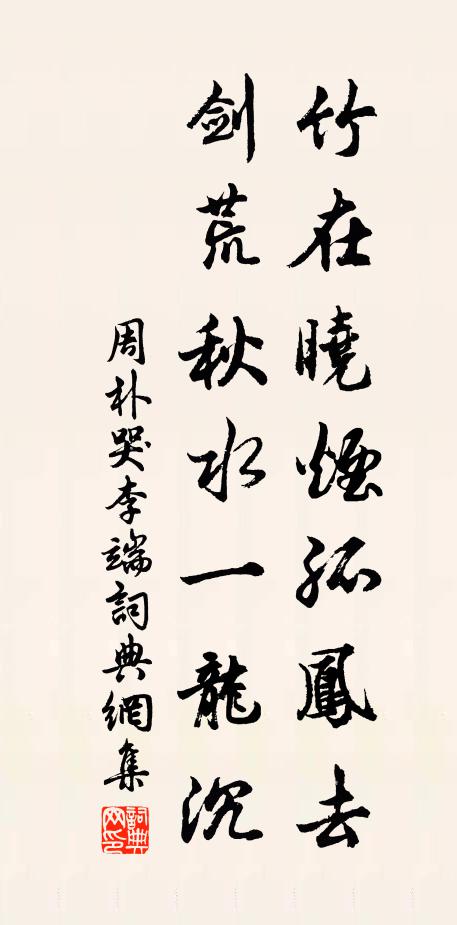 竹在曉煙孤鳳去
剑荒秋水一龍沉
周朴哭李端詞典網集
詞典網印